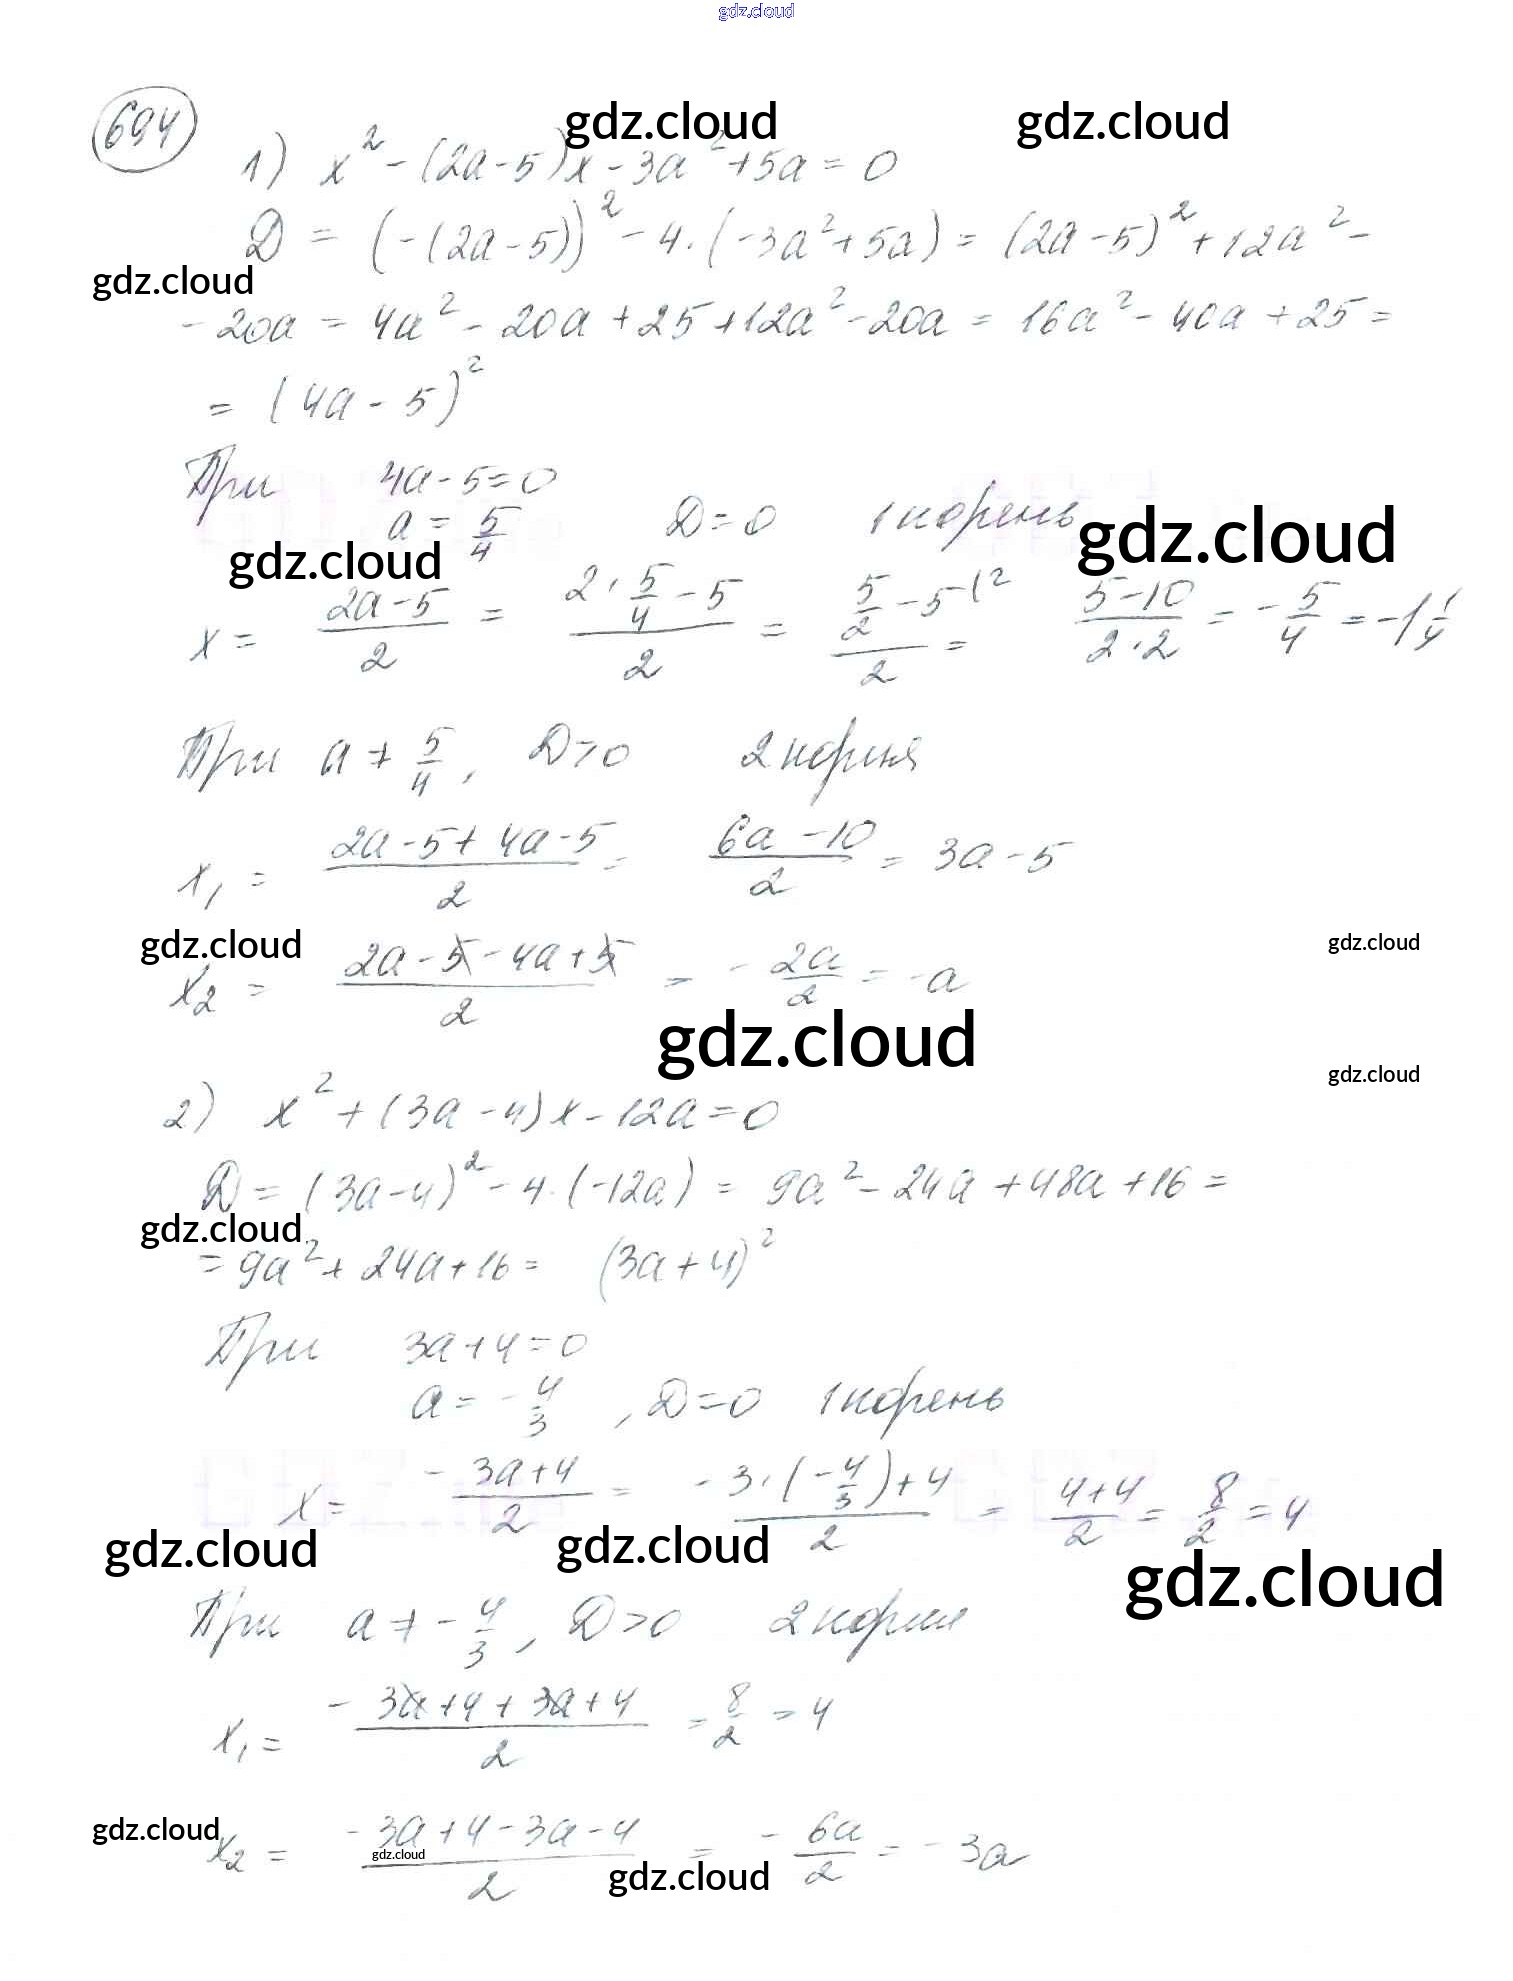 gdz.cloud
694
gdz.cloud gdz.cloud
1) x² - (2a - 5)x - 3a² + 5a = 0
D = (-(2a - 5))² - 4 · (-3a² + 5a) = (2a - 5)² + 12a² -
gdz.cloud
- 20a = 4a² - 20a + 25 + 12a² - 20a = 16a² - 40a + 25 =
= (4a - 5)²
При 4a - 5 = 0
a = 5/4 D = 0 1 корень
gdz.cloud
gdz.cloud
x = (2a - 5)/2 = (2 · 5/4 - 5)/2 = (5/2 - 5^(2)/2 = (5 - 10)/(2 · 2) = - 5/4 = -1 1/4
При a ≠ 5/4, D > 0 2 корня
x₁ = (2a - 5 + 4a - 5)/2 = (6a - 10)/2 = 3a - 5
gdz.cloud gdz.cloud
x₂ = (2a - 5 - 4a + 5)/2 = - 2a/2 = -a
gdz.cloud
gdz.cloud
2) x² + (3a - 4)x - 12a = 0
D = (3a - 4)² - 4 · (-12a) = 9a² - 24a + 48a + 16 =
gdz.cloud
= 9a² + 24a + 16 = (3a + 4)²
При 3a + 4 = 0
a = - 4/3, D = 0 1 корень
x = (-3a + 4)/2 = (-3 · (-4/3) + 4)/2 = (4 + 4)/2 = 8/2 = 4
gdz.cloud gdz.cloud
gdz.cloud
При a ≠ - 4/3, D > 0 2 корня
x₁ = (-3a + 4 + 3a + 4)/2 = 8/2 = 4
gdz.cloud
x₂ = (-3a + 4 - 3a - 4)/2 = - 6a/2 = - 3a
gdz.cloud
gdz.cloud